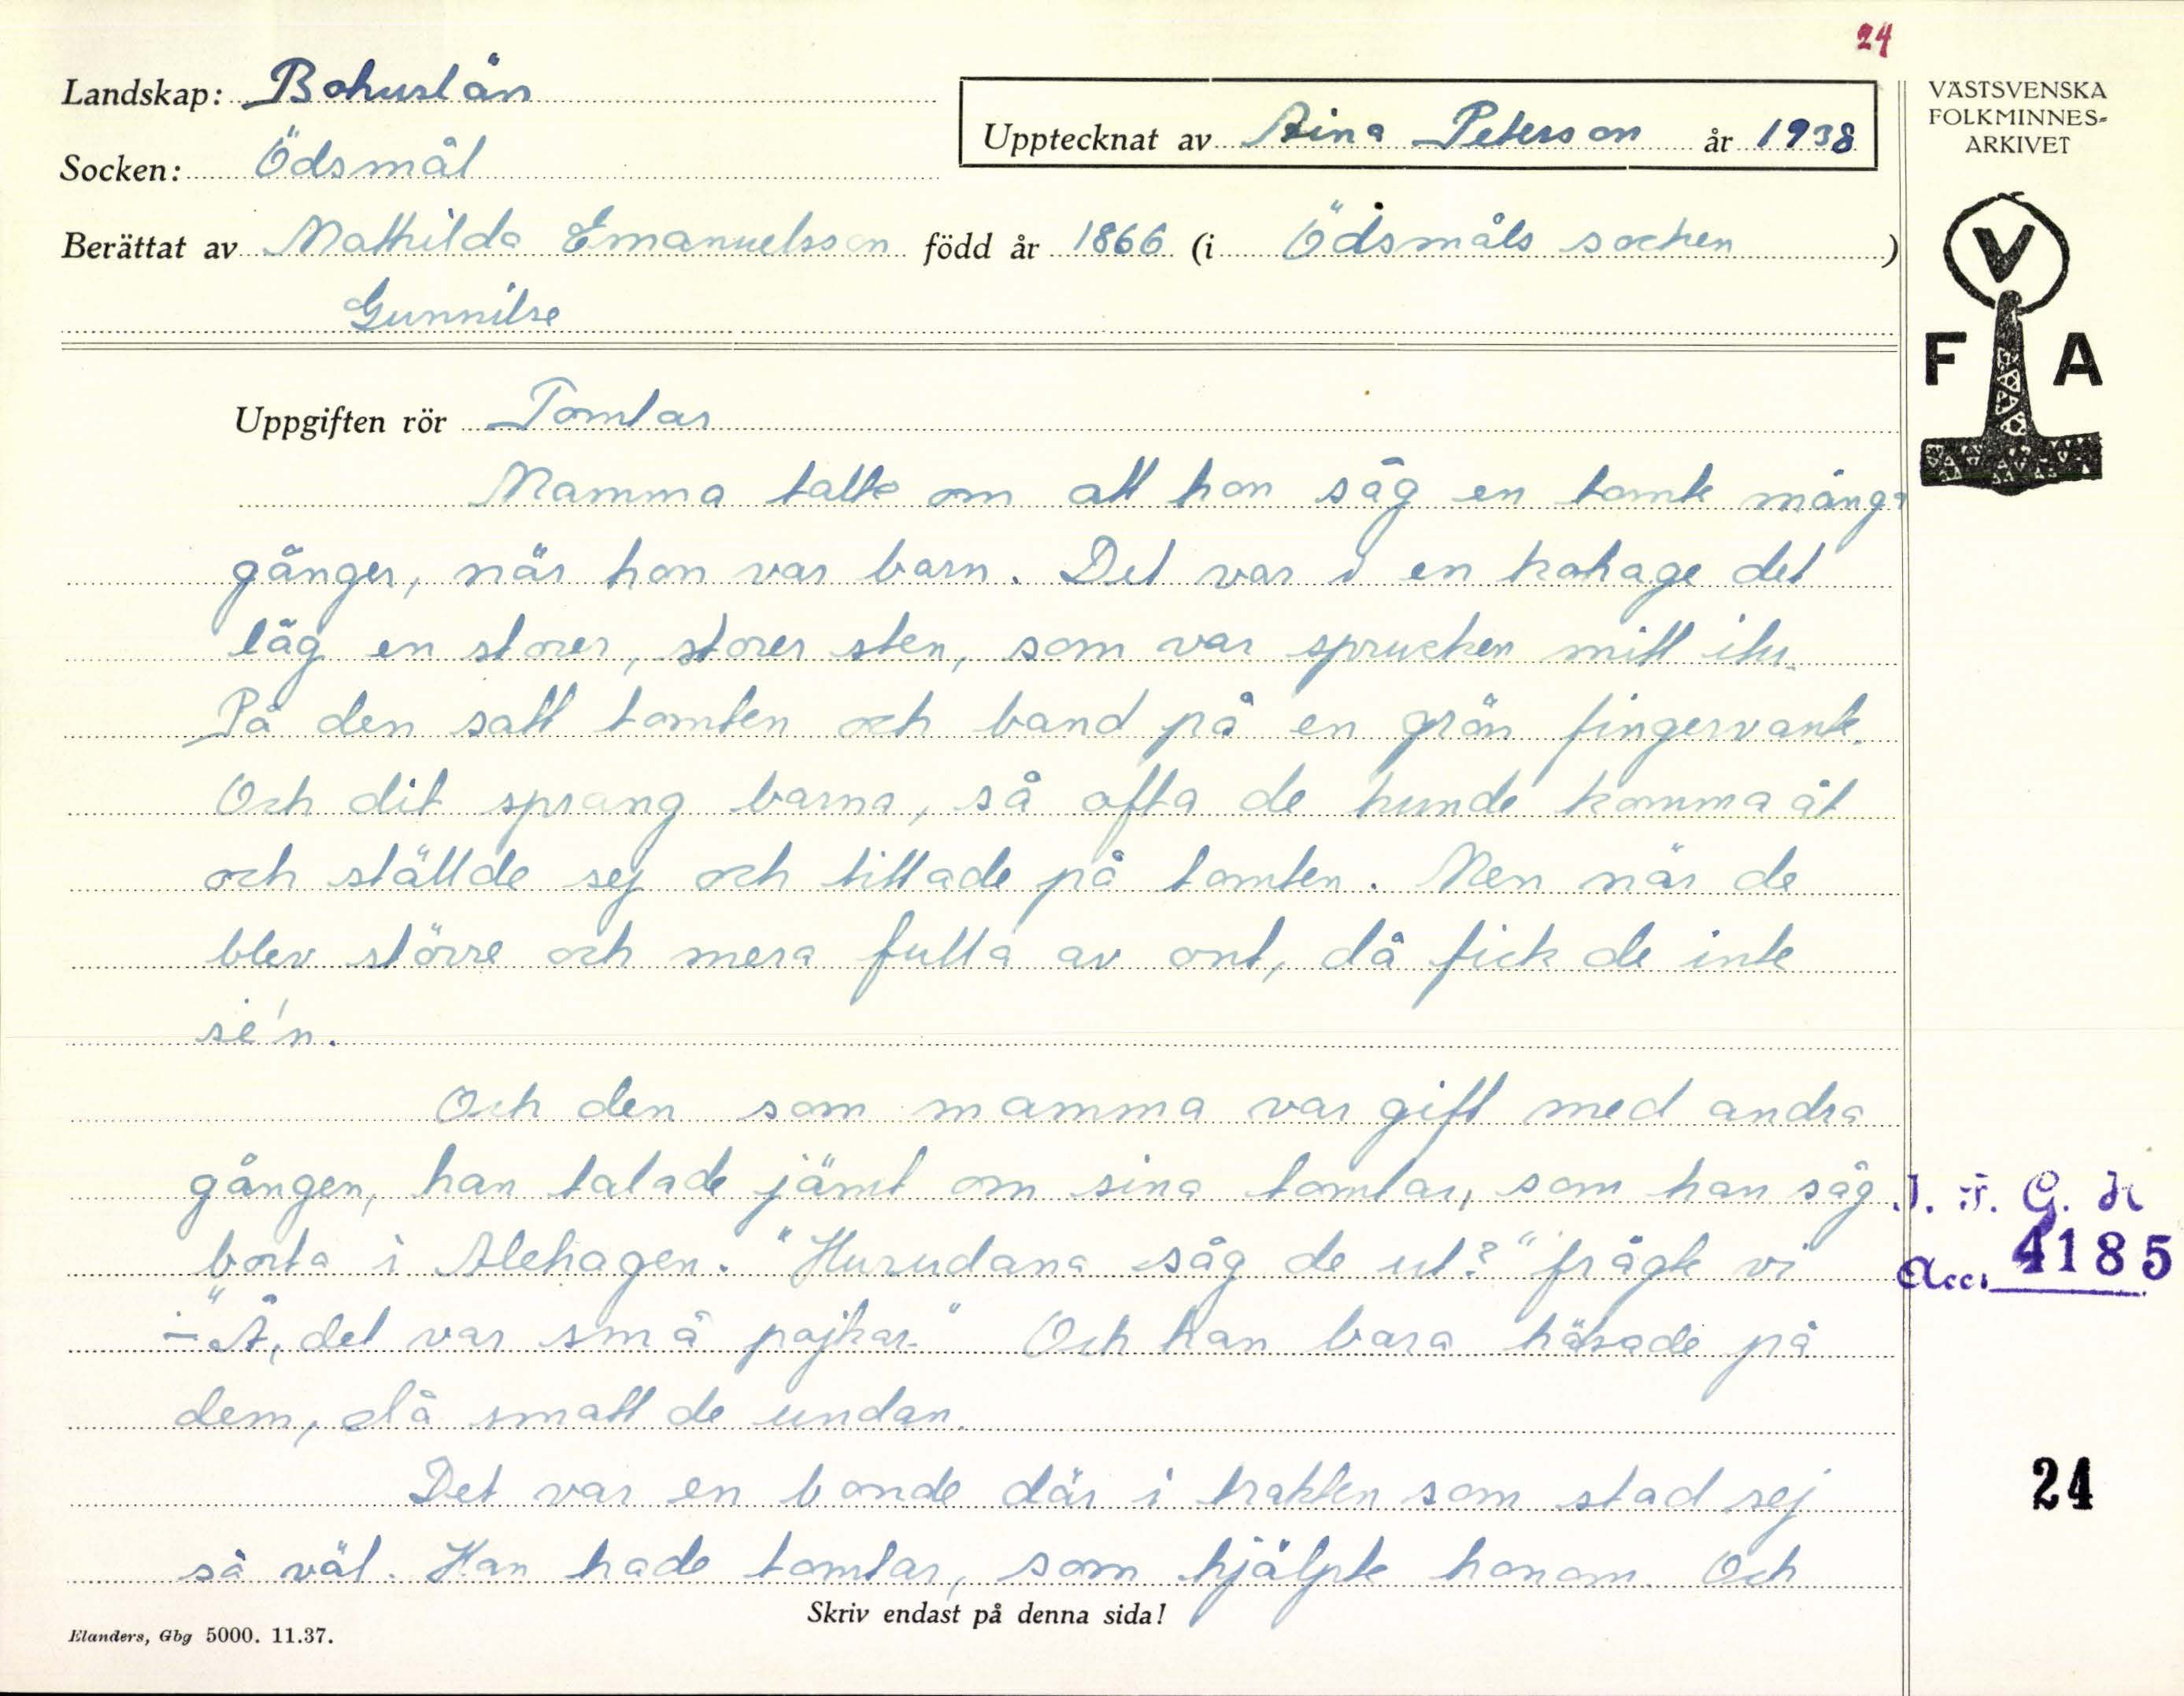 24
Landskap: Bohuslän
Upptecknat av Aina Peterson år 1938
Socken: Ödsmål
Berättat av Mathilda Emanuelsson född år 1866 (i Ödsmåls socken)
Gunnilse
VÄSTSVENSKA
FOLKMINNES-
ARKIVET
V
F A
Uppgiften rör Tomtar
Mamma talte om att hon såg en tomte många
gånger, när hon var barn. Det var i en kohage det
låg en storer, storer sten, som var sprucken mitt itu.
På den satt tomten och band på en grön fingervante.
Och dit sprang barna, så ofta de kunde komma åt
och ställde sej och tittade på tomten. Men när de
blev större och mera fulla av ont, då fick de inte
se'n.
Och den som mamma var gift med andra
gången, han talade jämt om sina tomtar, som han såg
borta i Alehagen. "Hurudana såg de ut?" frågte vi
- "Å, det var små pojkar." Och han bara hälsade på
dem, då smatt de undan.
Det var en bonde där i trakten som stod sej
så väl. Han hade tomtar, som hjälpte honom. Och
I. F. G. H
Acc. 4185
24
Skriv endast på denna sida!
Elanders, Gbg 5000. 11.37.